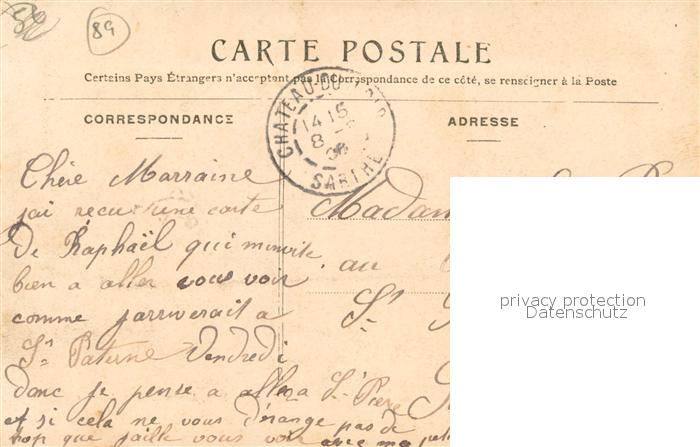 89
CARTE POSTALE
Certains Pays Étrangers n'acceptent pas la Correspondance de ce côté, se renseigner à la Poste
CORRESPONDANCE
ADRESSE
CHATEAU-DU-LOIR
14 15
8
08
SARTHE
Chére Marraine
jai recu une carte
De Raphaël qui minvite
bien a aller vous voir
comme jarriverait a
St Paterne Vendredi
donc je pense a aller a St Pierre
et si cela ne vous dérange pas de
trop que jaille vous voir avec ma
Madam
au
St
privacy protection
Datenschutz